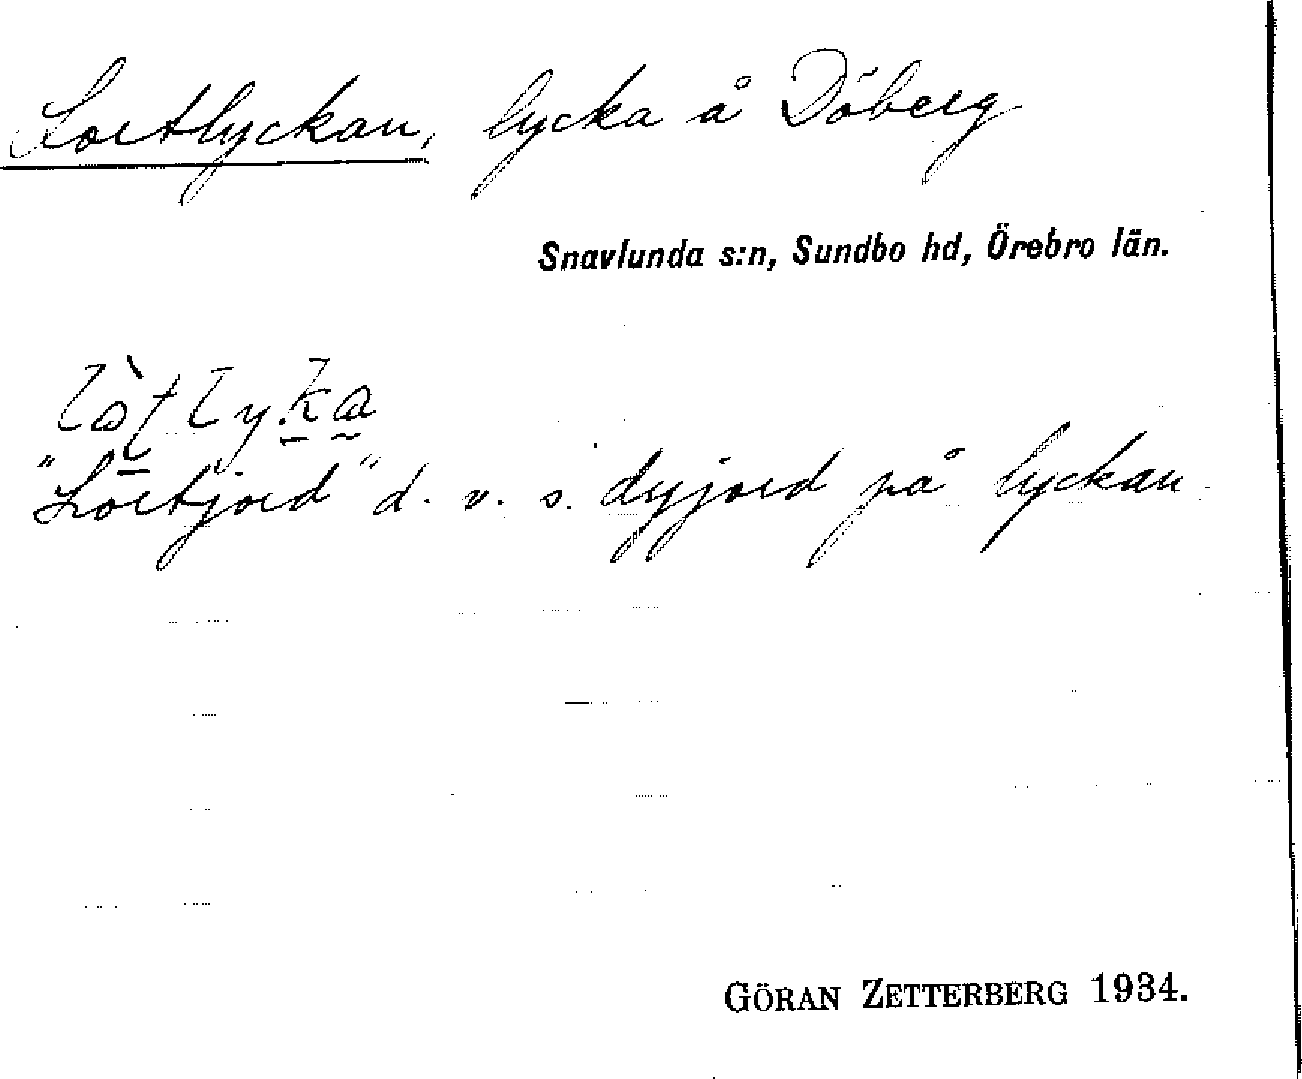 Lortlyckan, lycka å Döberg
Snavlunda s:n, Sundbo hd, Örebro län.
"Lortjord" d. v. s. dyjord på lyckan
GÖRAN ZETTERBERG 1934.